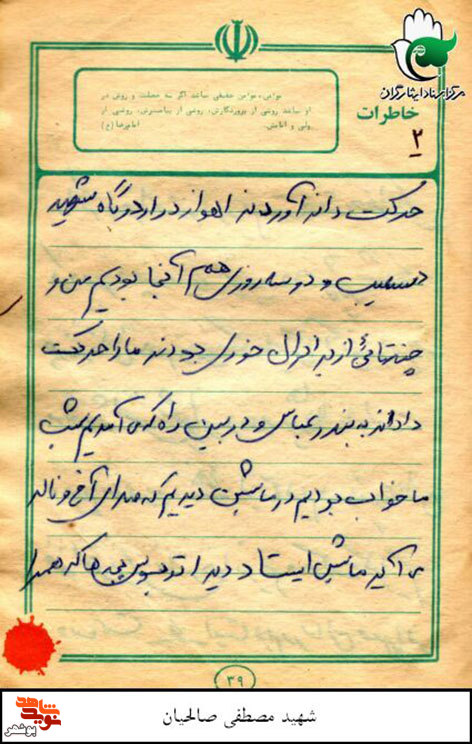 مرکز اسناد ایثارگران
خاطرات
۲
مؤمن، مؤمن حقیقی نباشد اگر سه خصلت و روش در
او نباشد روشی از پروردگارش، روشی از پیامبرش، روشی از
ولی و امامش. امام رضا (ع)
حرکت دادند آوردند اهواز در اردوگاه شهید
و دو سه روزی هم آنجا بودیم من و
چندتائی از برادران خودی بودند ما را حرکت
دادند به بندرعباس و در بین راه که می آمدیم شب
ما خواب بودیم در ماشین دیدیم که صدای آخ و ناله
می آید ماشین ایستاد دیدم اتوبوس بچه ها که همراه
۳۹
شاهد
نوید
بوشهر
شهید مصطفی صالحیان